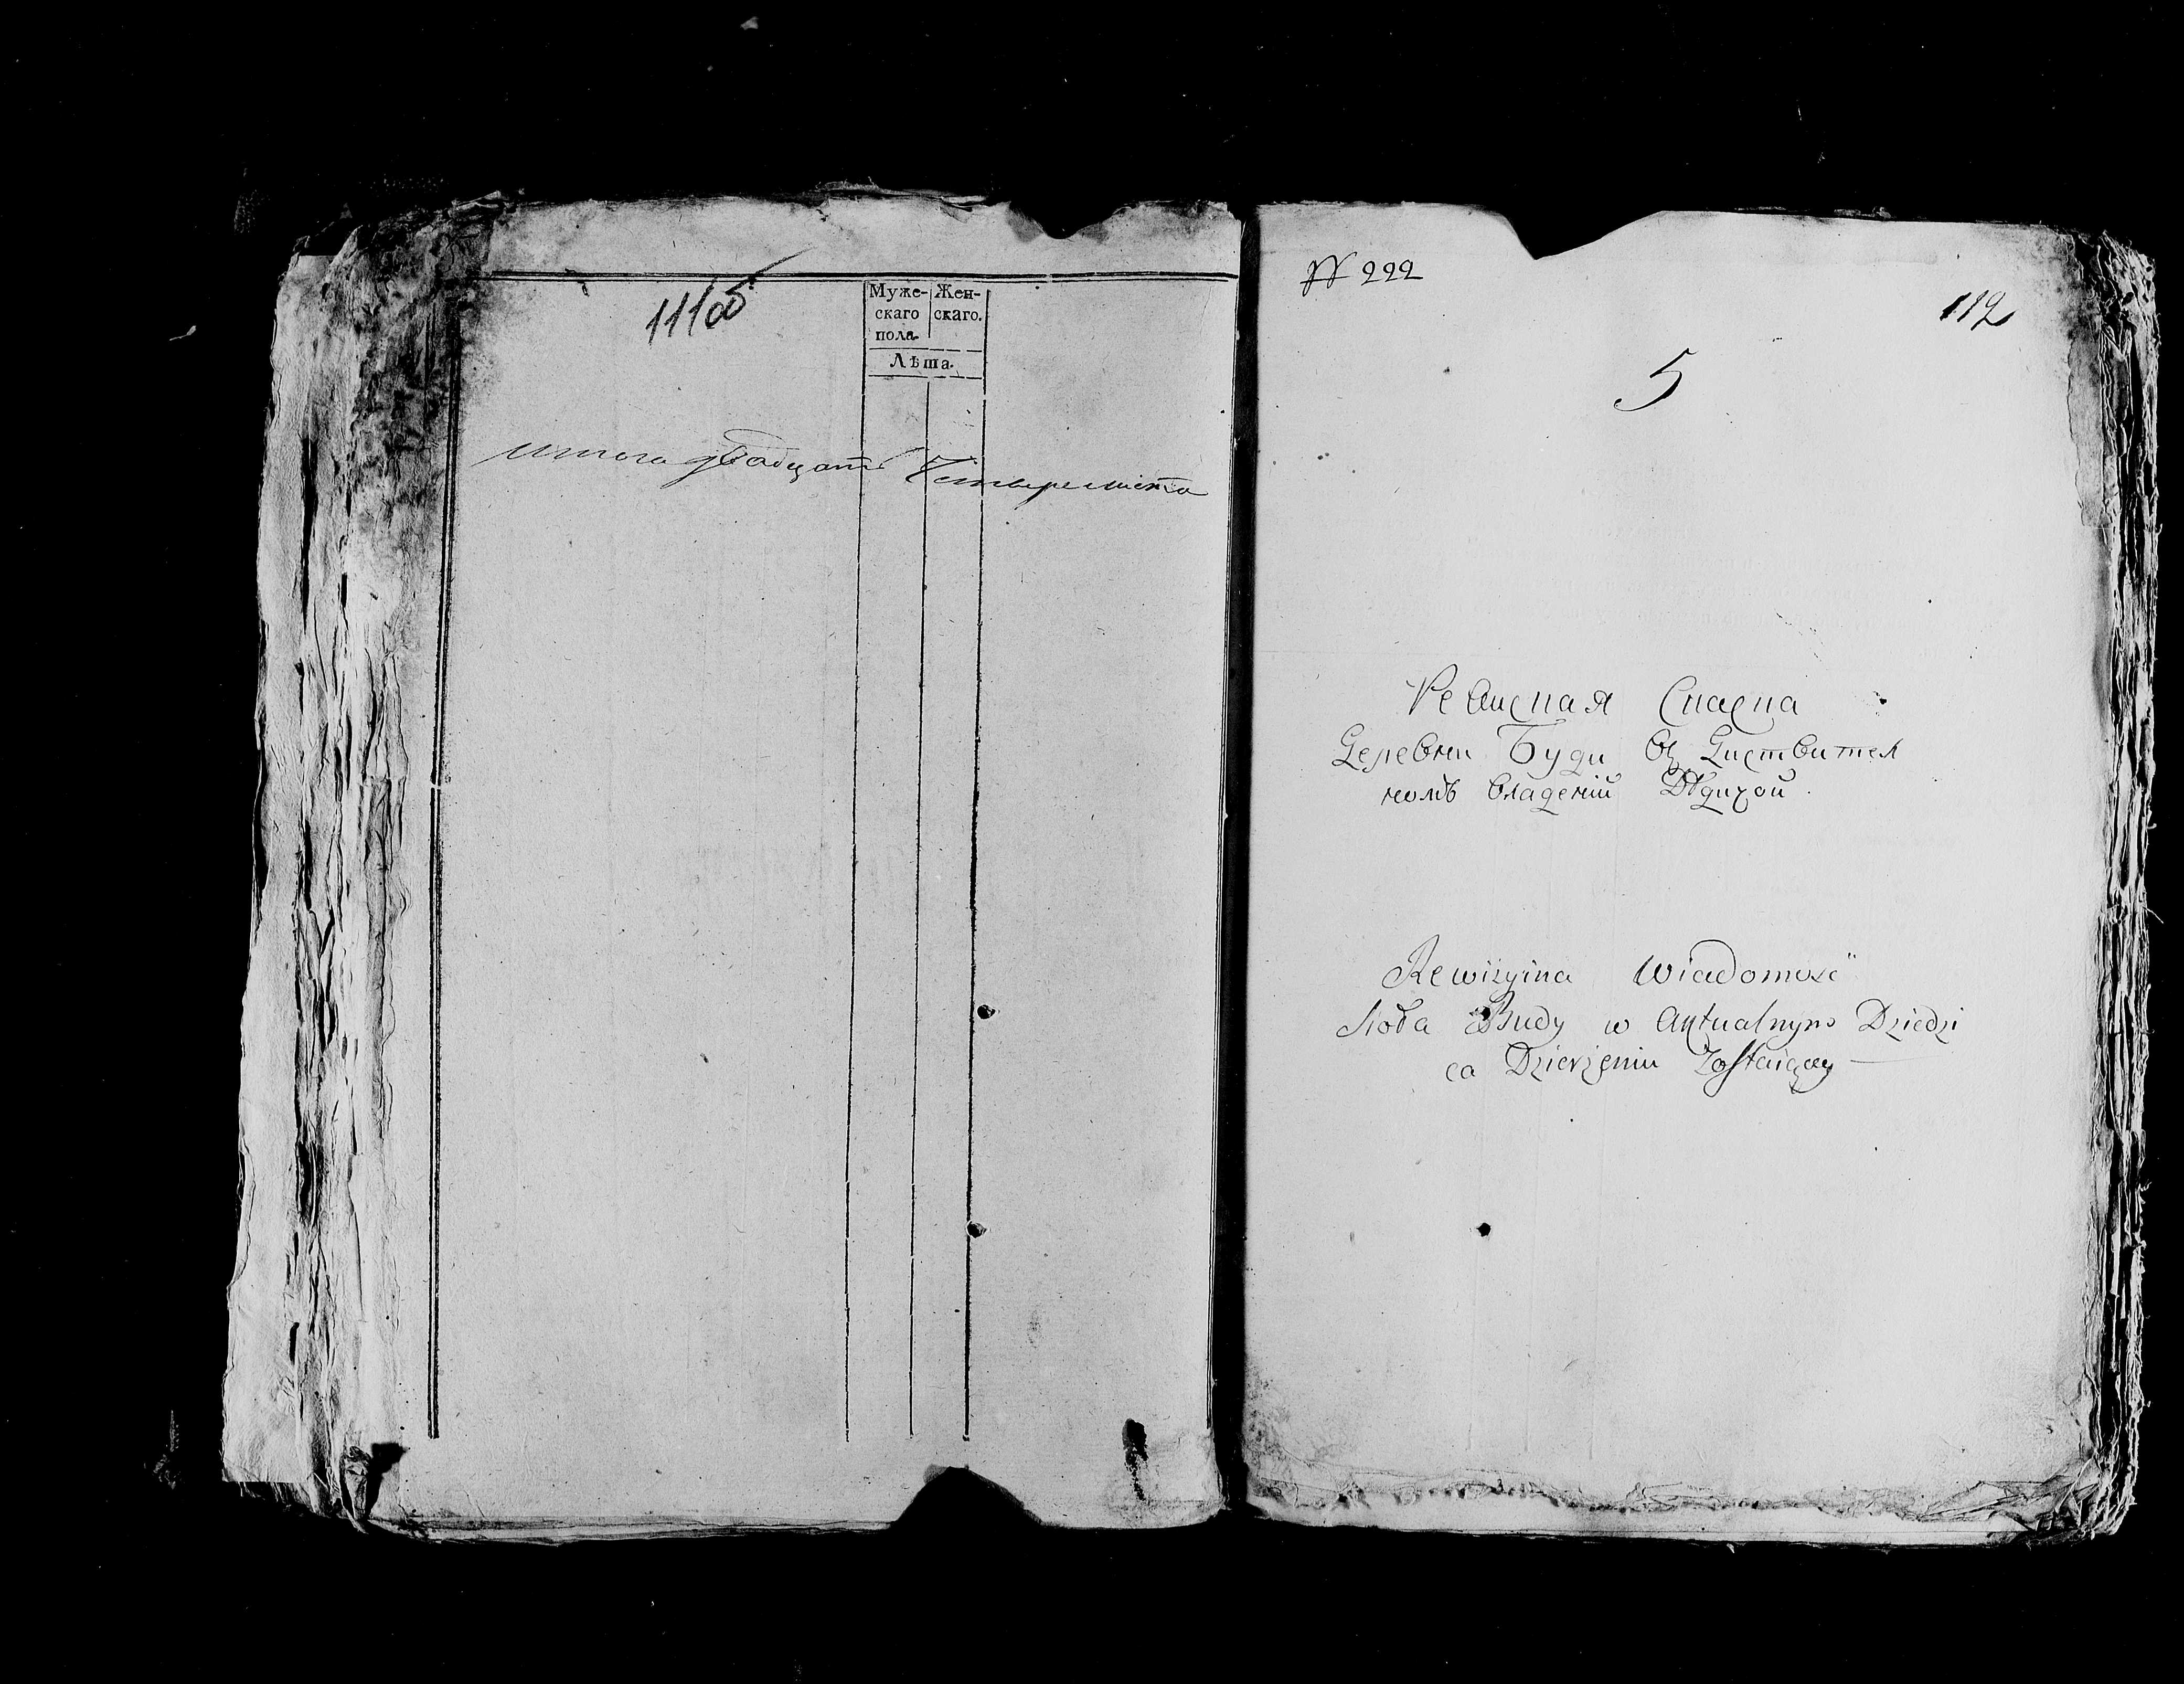 111об
Муже- Жен-
скаго скаго.
пола.
Лѣта.
итого двадцать Четыре листа
№ 222
112
5
Ревисная Сказка
Деревни Буди въ Дисствител
номъ владении Дѣдичой
Rewizyina Wiadomość
Budy w Aktualnym Dziedzi
ca Dzierżeniu Zostaiącey